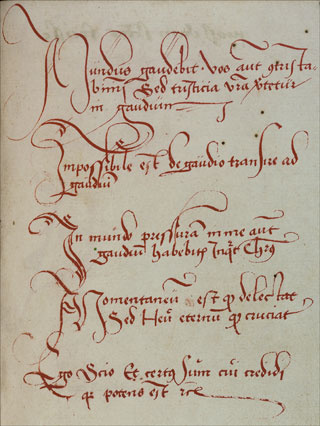 Mundus gaudebit. Vos aut̄ ꝯtrista
bimī Sed tristicia vr̄a v̓tetur
in gaudium
Impossibile est de gaudio transire ad
gaudiū
In mundo pressurā in me aut̄
gaudiū habebitꝭ inqt Chrus
Momentaneū est qd delectat
Sed Heu eternū qd cruciat
Ego Scio Et certus sum cui credidi
qꝛ potens est